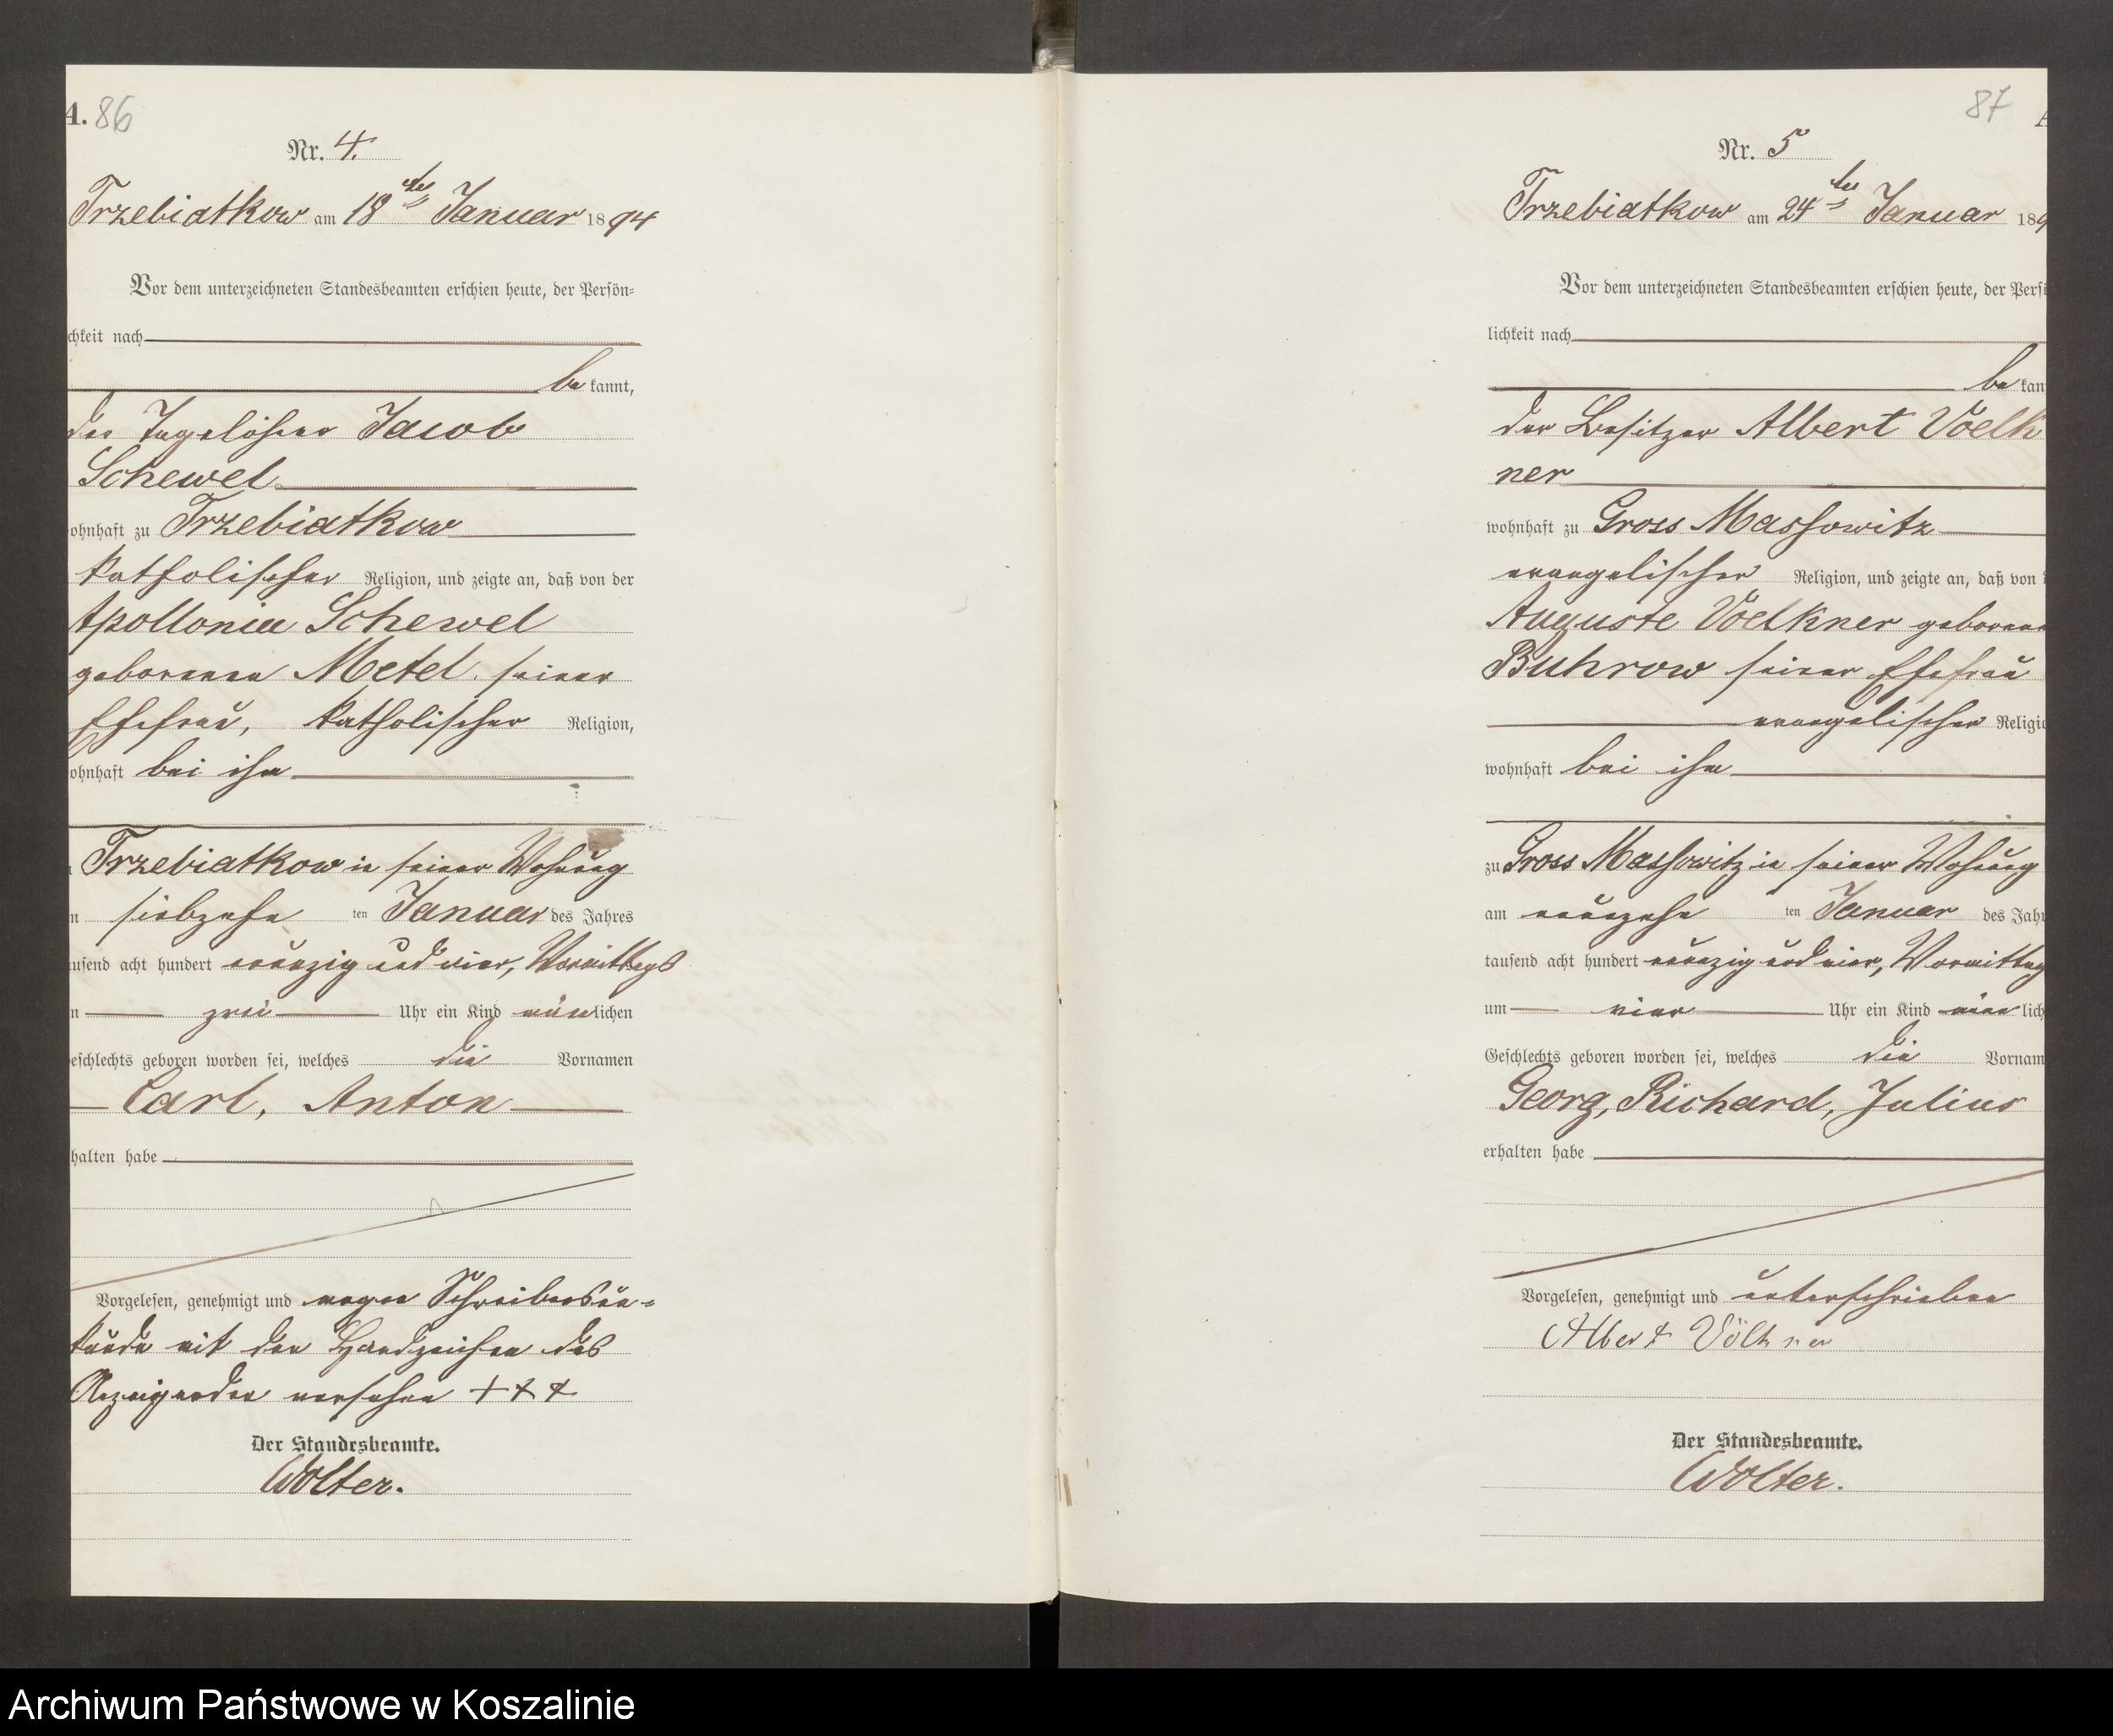 A. 86
Nr. 4.
Trzebiatkow am 18ten Januar 1894
Vor dem unterzeichneten Standesbeamten erschien heute, der Persön-
chkeit nach
be kannt,
der Tagelöhner Jacob
Schewel
ohnhaft zu Trzebiatkow
katholischer Religion, und zeigte an, daß von der
Apollonia Schewel
geborenen Metel seiner
Ehefrau, katholischer Religion,
ohnhaft bei ihm
Trzebiatkow in seiner Wohnung
n siebzehn ten Januar des Jahres
usend acht hundert neunzig und vier, Vormittags
m zwei Uhr ein Kind männlichen
eschlechts geboren worden sei, welches die Vornamen
Carl, Anton
halten habe
Vorgelesen, genehmigt und wegen Schreibensun-
kunde mit den Handzeichen des
Anzeigenden versehen + + +
Der Standesbeamte.
Wolter.
87
Nr. 5
Trzebiatkow am 24ten Januar 189
Vor dem unterzeichneten Standesbeamten erschien heute, der Persö
lichkeit nach
be kan
der Besitzer Albert Voelk
ner
wohnhaft zu Gross Massowitz
evangelischer Religion, und zeigte an, daß von
Auguste Voelkner geborene
Buhrow seiner Ehefrau
evangelischer Religio
wohnhaft bei ihm
zu Gross Massowitz in seiner Wohnung
am neunzehn ten Januar des Jahr
tausend acht hundert neunzig und vier, Vormittag
um vier Uhr ein Kind männ lich
Geschlechts geboren worden sei, welches die Vornam
Georg, Richard, Julius
erhalten habe
Vorgelesen, genehmigt und unterschrieben
Albert Völkner
Der Standesbeamte.
Wolter.
Archiwum Państwowe w Koszalinie